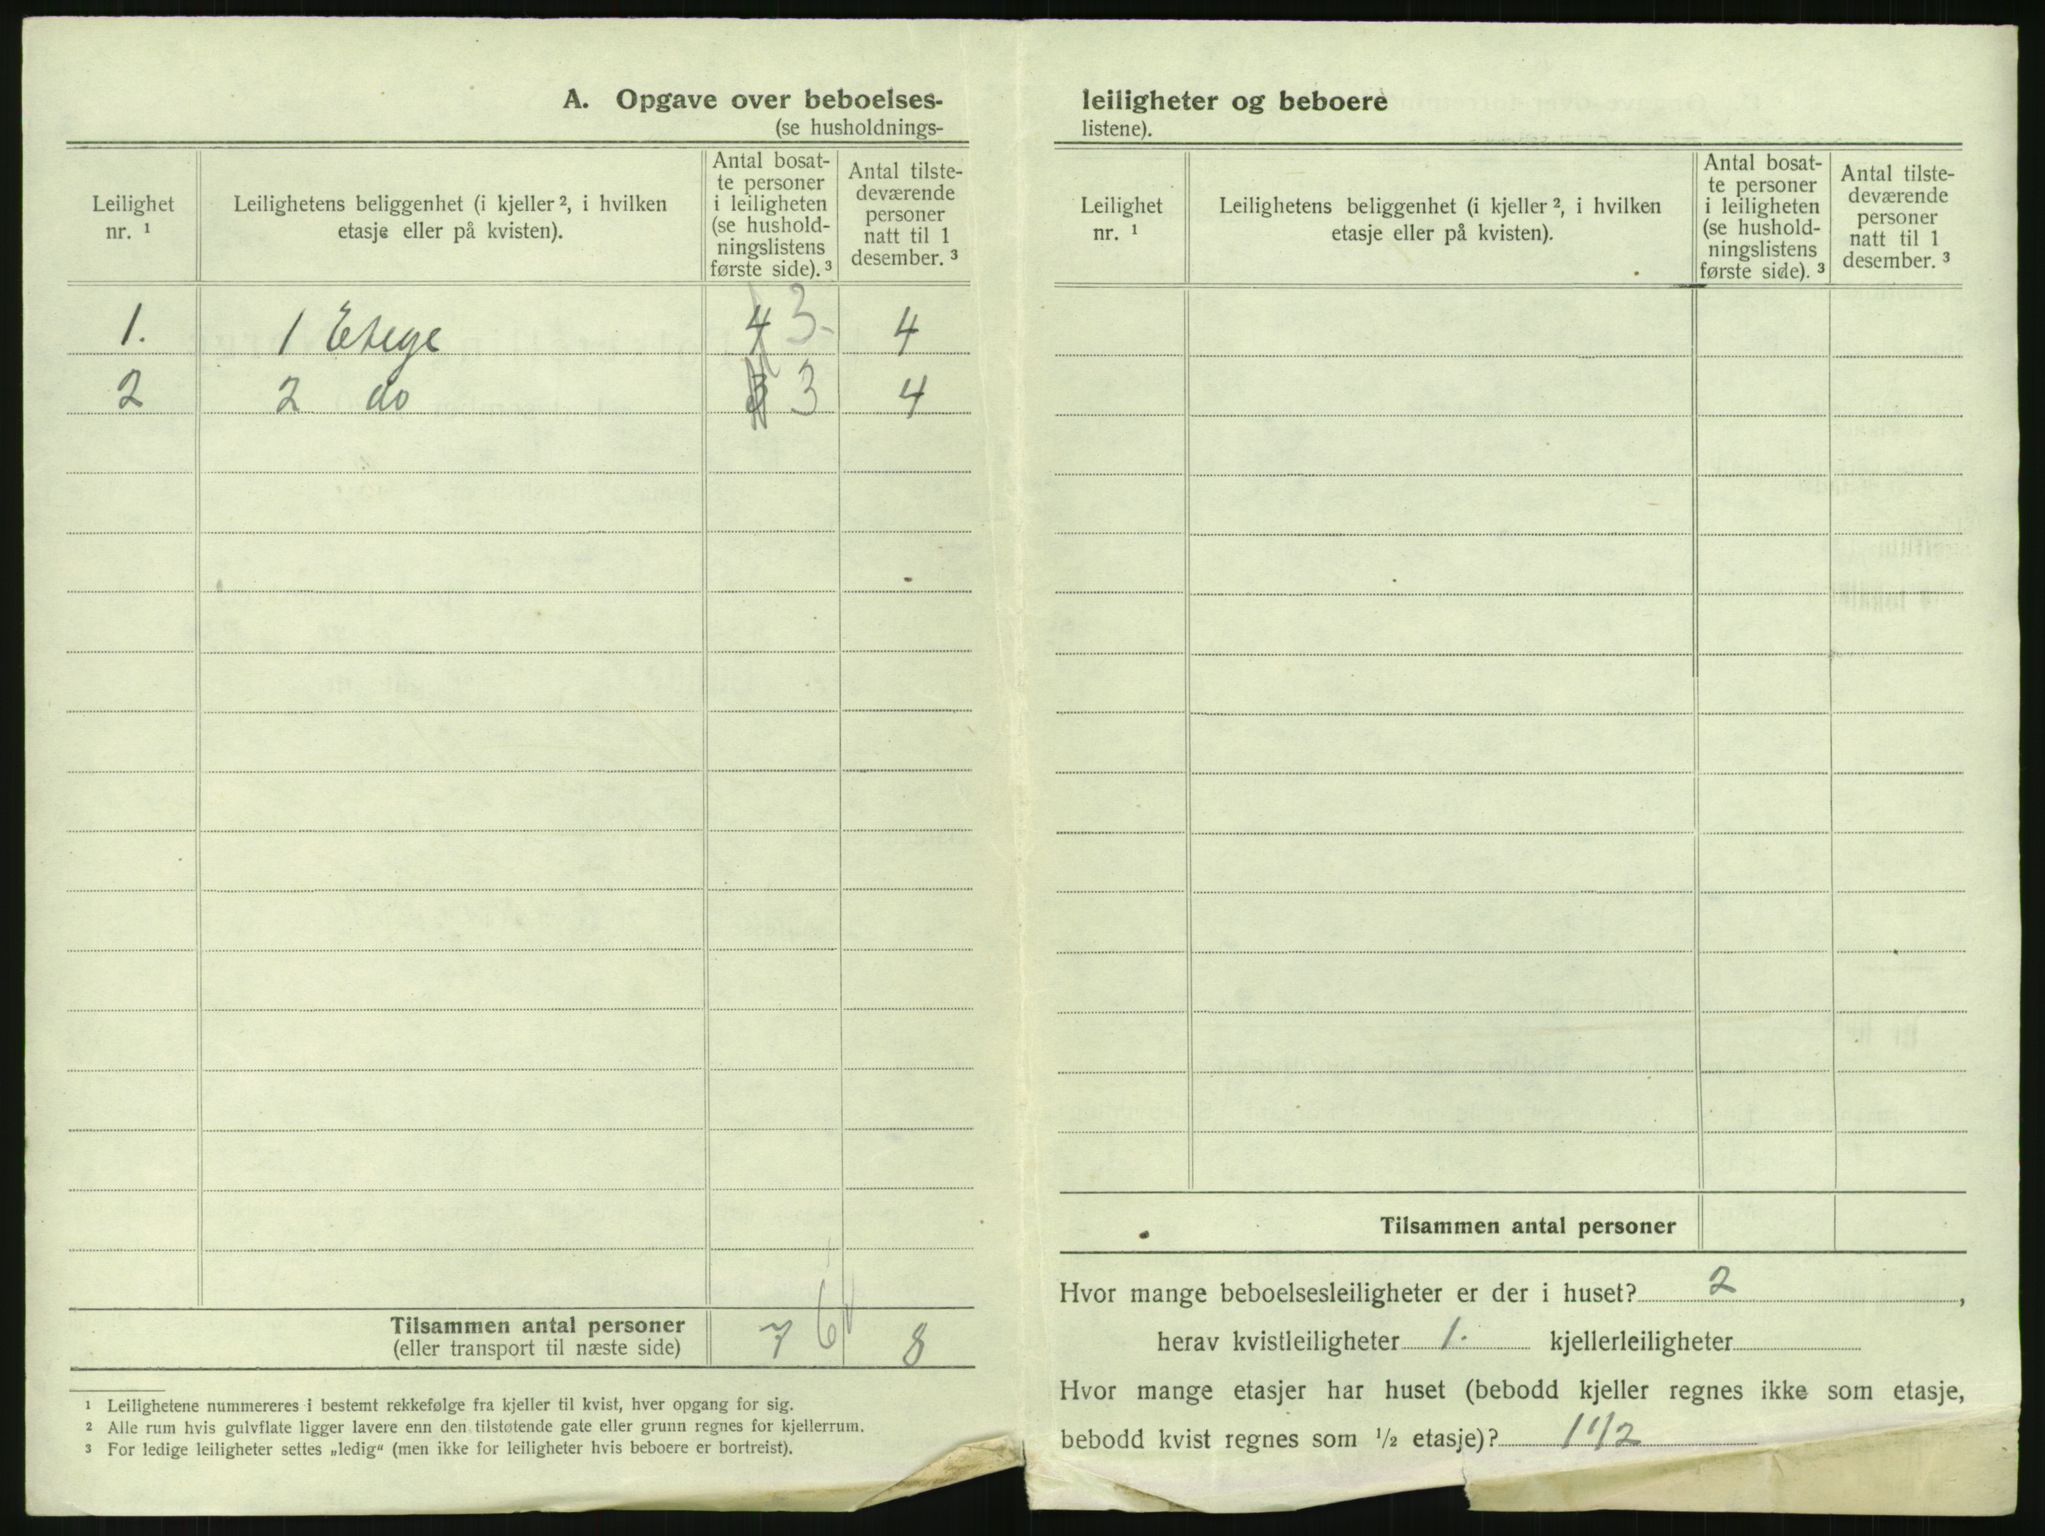 A. Opgave over beboelses-
(se husholdnings-
Leilighet nr. ¹
Leilighetens beliggenhet (i kjeller ², i hvilken etasje eller på kvisten).
Antal bosat-
te personer
i leiligheten
(se hushold-
ningslistens
første side). ³
Antal tilste-
deværende
personer
natt til 1
desember. ³
1. 1 Etege 4 3 4
2 2 do 3 3 4
Tilsammen antal personer 7 6 8
(eller transport til næste side)
¹ Leilighetene nummereres i bestemt rekkefølge fra kjeller til kvist, hver opgang for sig.
² Alle rum hvis gulvflate ligger lavere enn den tilstøtende gate eller grunn regnes for kjellerrum.
³ For ledige leiligheter settes „ledig“ (men ikke for leiligheter hvis beboere er bortreist).
leiligheter og beboere
listene).
Leilighet nr. ¹
Leilighetens beliggenhet (i kjeller ², i hvilken etasje eller på kvisten).
Antal bosat-
te personer
i leiligheten
(se hushold-
ningslistens
første side). ³
Antal tilste-
deværende
personer
natt til 1
desember. ³
Tilsammen antal personer
Hvor mange beboelsesleiligheter er der i huset? 2,
herav kvistleiligheter 1. kjellerleiligheter
Hvor mange etasjer har huset (bebodd kjeller regnes ikke som etasje,
bebodd kvist regnes som ½ etasje)? 1 1/2